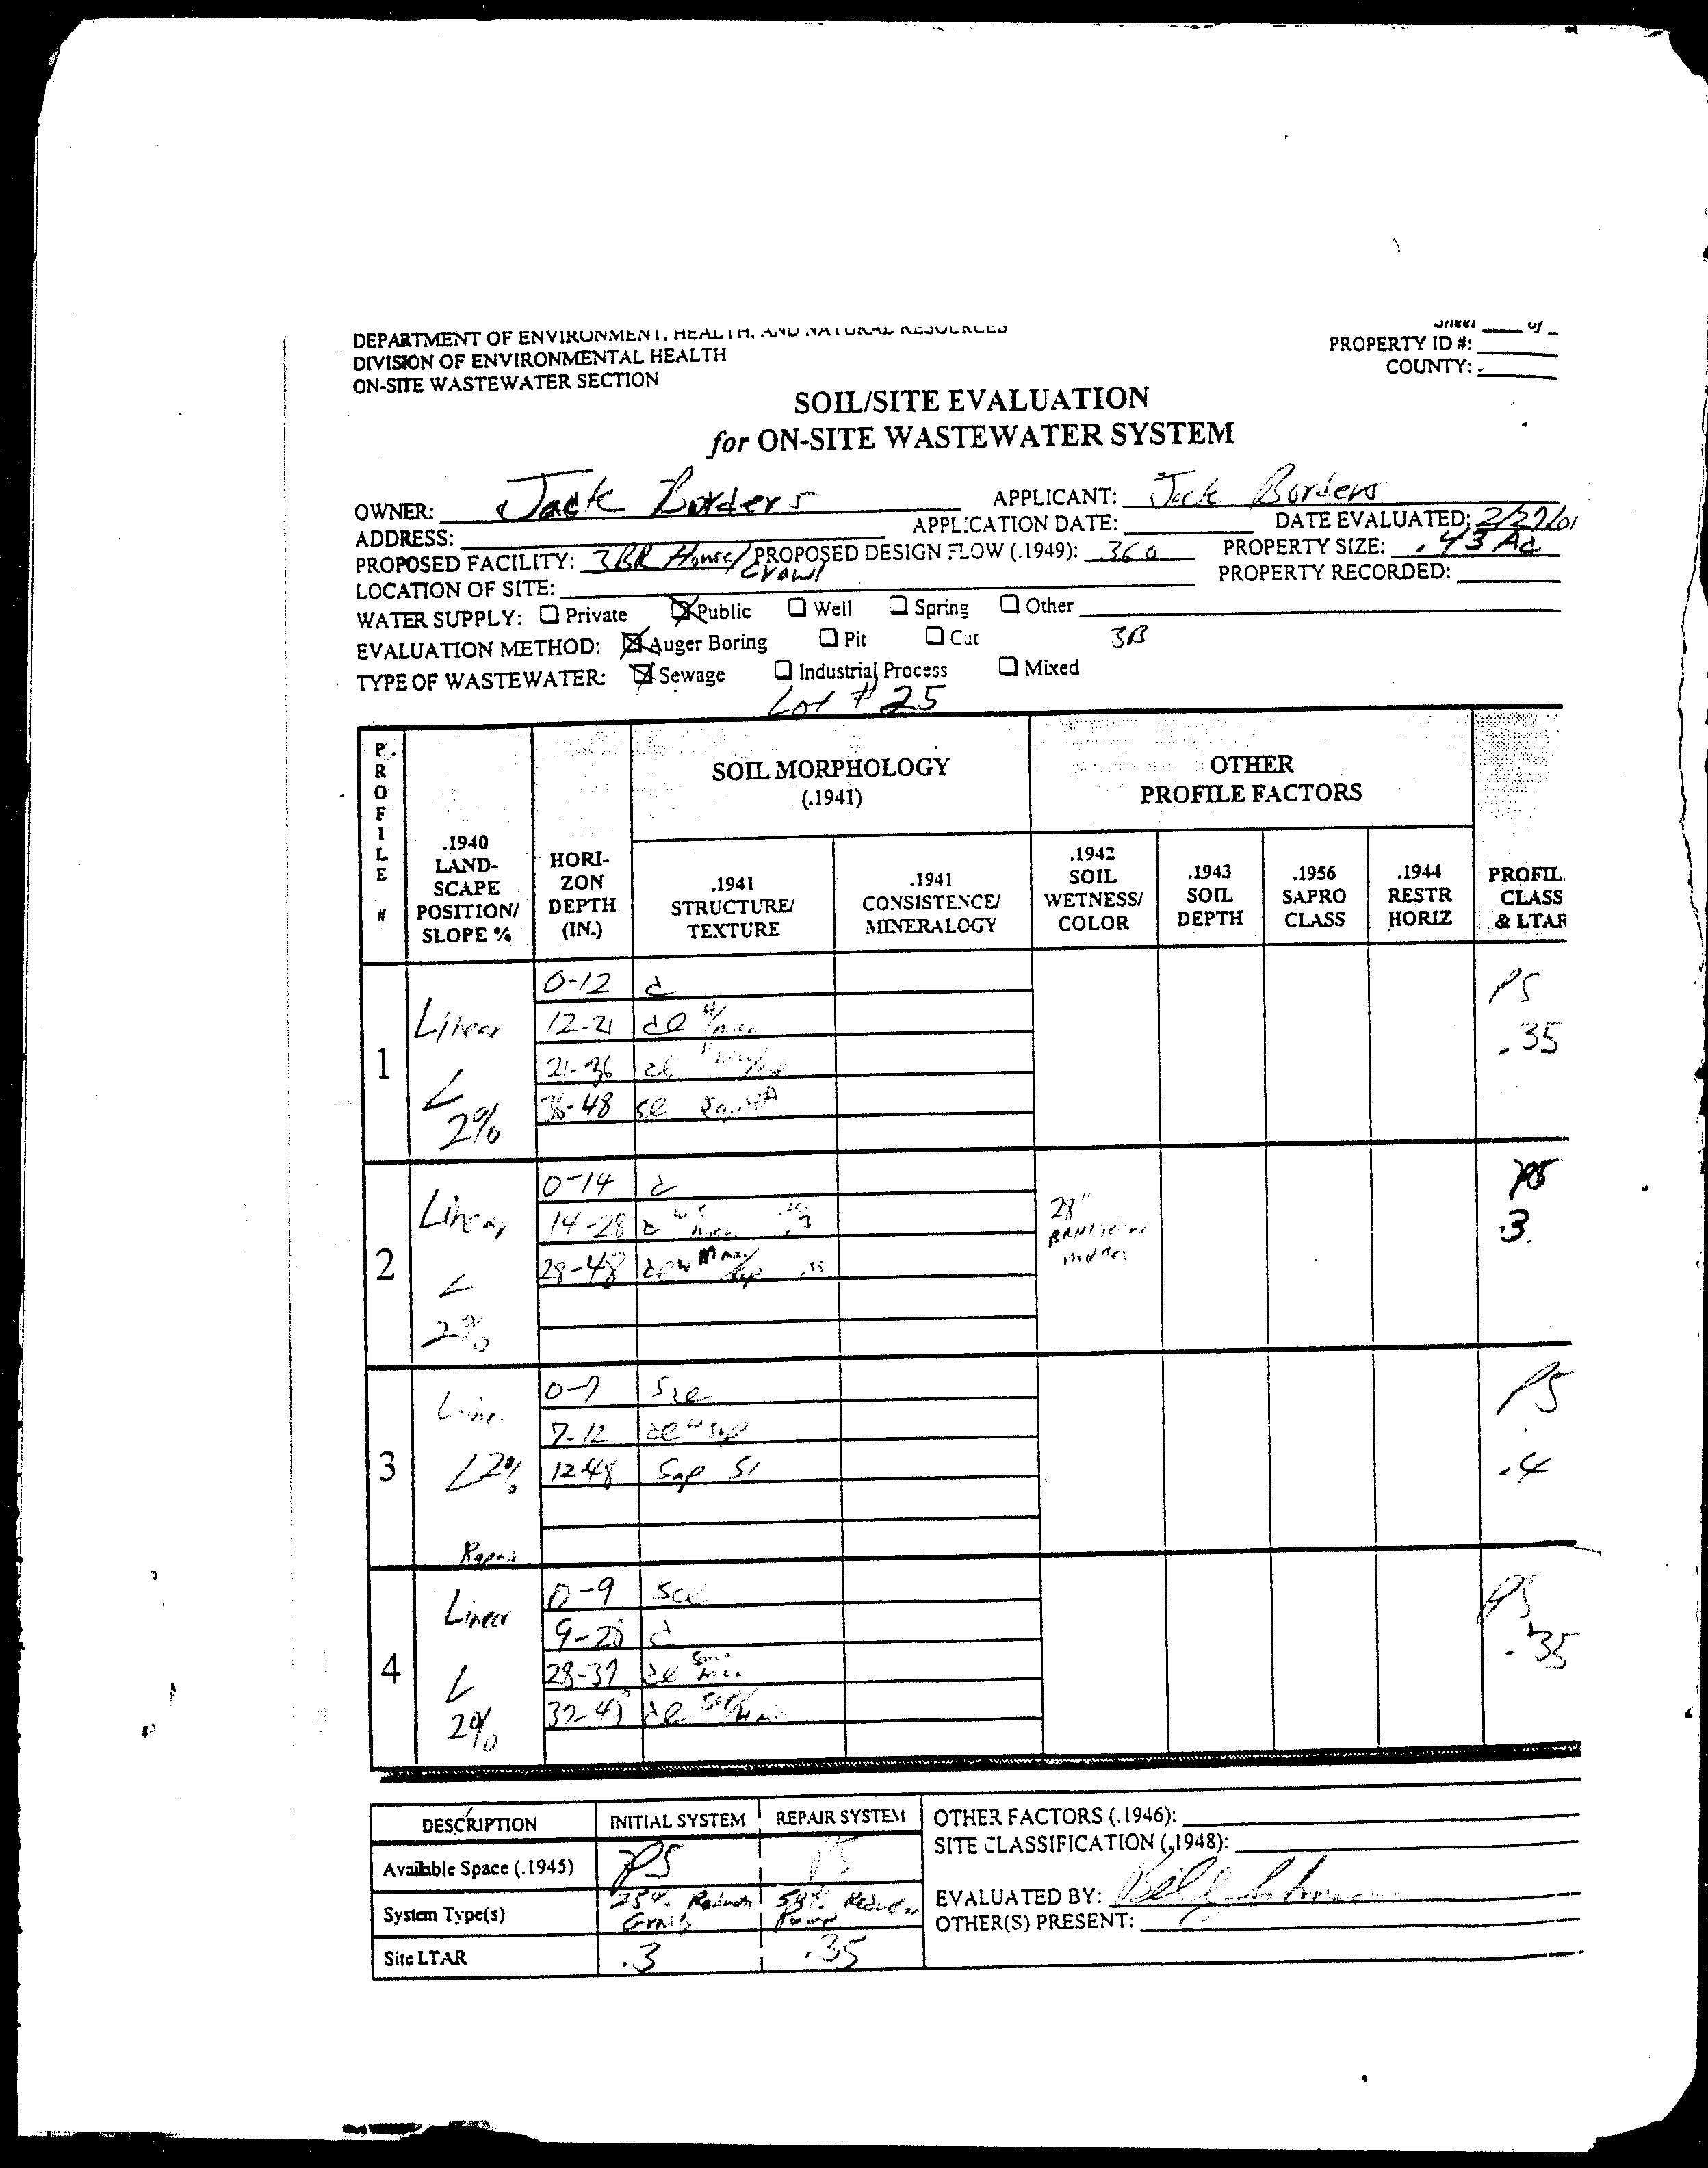 DEPARTMENT OF ENVIRONMENT, HEALTH, AND NATURAL RESOURCES
DIVISION OF ENVIRONMENTAL HEALTH
ON-SITE WASTEWATER SECTION
Sheet ____ of _
PROPERTY ID #:
COUNTY:
SOIL/SITE EVALUATION
for ON-SITE WASTEWATER SYSTEM
OWNER: Jack Borders APPLICANT: Jack Borders
ADDRESS: APPLICATION DATE: DATE EVALUATED: 2/27/01
PROPOSED FACILITY: 3BR House/Crawl PROPOSED DESIGN FLOW (.1949): 360 PROPERTY SIZE: .43 Ac
LOCATION OF SITE: PROPERTY RECORDED:
WATER SUPPLY: ☐ Private ☒ Public ☐ Well ☐ Spring ☐ Other
EVALUATION METHOD: ☒ Auger Boring ☐ Pit ☐ Cut 3B
TYPE OF WASTEWATER: ☒ Sewage ☐ Industrial Process ☐ Mixed
Lot # 25
PROFILE #
.1940 LAND-SCAPE POSITION/ SLOPE %
HORI-ZON DEPTH (IN.)
SOIL MORPHOLOGY (.1941)
.1941 STRUCTURE/ TEXTURE
.1941 CONSISTENCE/ MINERALOGY
OTHER PROFILE FACTORS
.1942 SOIL WETNESS/ COLOR
.1943 SOIL DEPTH
.1956 SAPRO CLASS
.1944 RESTR HORIZ
PROFIL. CLASS & LTAR
1 Linear < 2%
0-12 c
12-21 cl
21-36 cl
36-48 scl
PS .35
2 Linear < 2%
0-14 c
14-28 c .3
28-48 cl .35
28"
PS .3
3 <2%
0-7 scl
7-12 cl w sap
12-48 Sap Sl
PS .4
Repair
4 Linear < 2%
0-9 scl
9-28 c
28-37 cl some mica
37-48 cl
PS .35
DESCRIPTION INITIAL SYSTEM REPAIR SYSTEM
Available Space (.1945) PS PS
System Type(s) 25% Reduction
Site LTAR .3 .35
OTHER FACTORS (.1946):
SITE CLASSIFICATION (.1948):
EVALUATED BY:
OTHER(S) PRESENT: